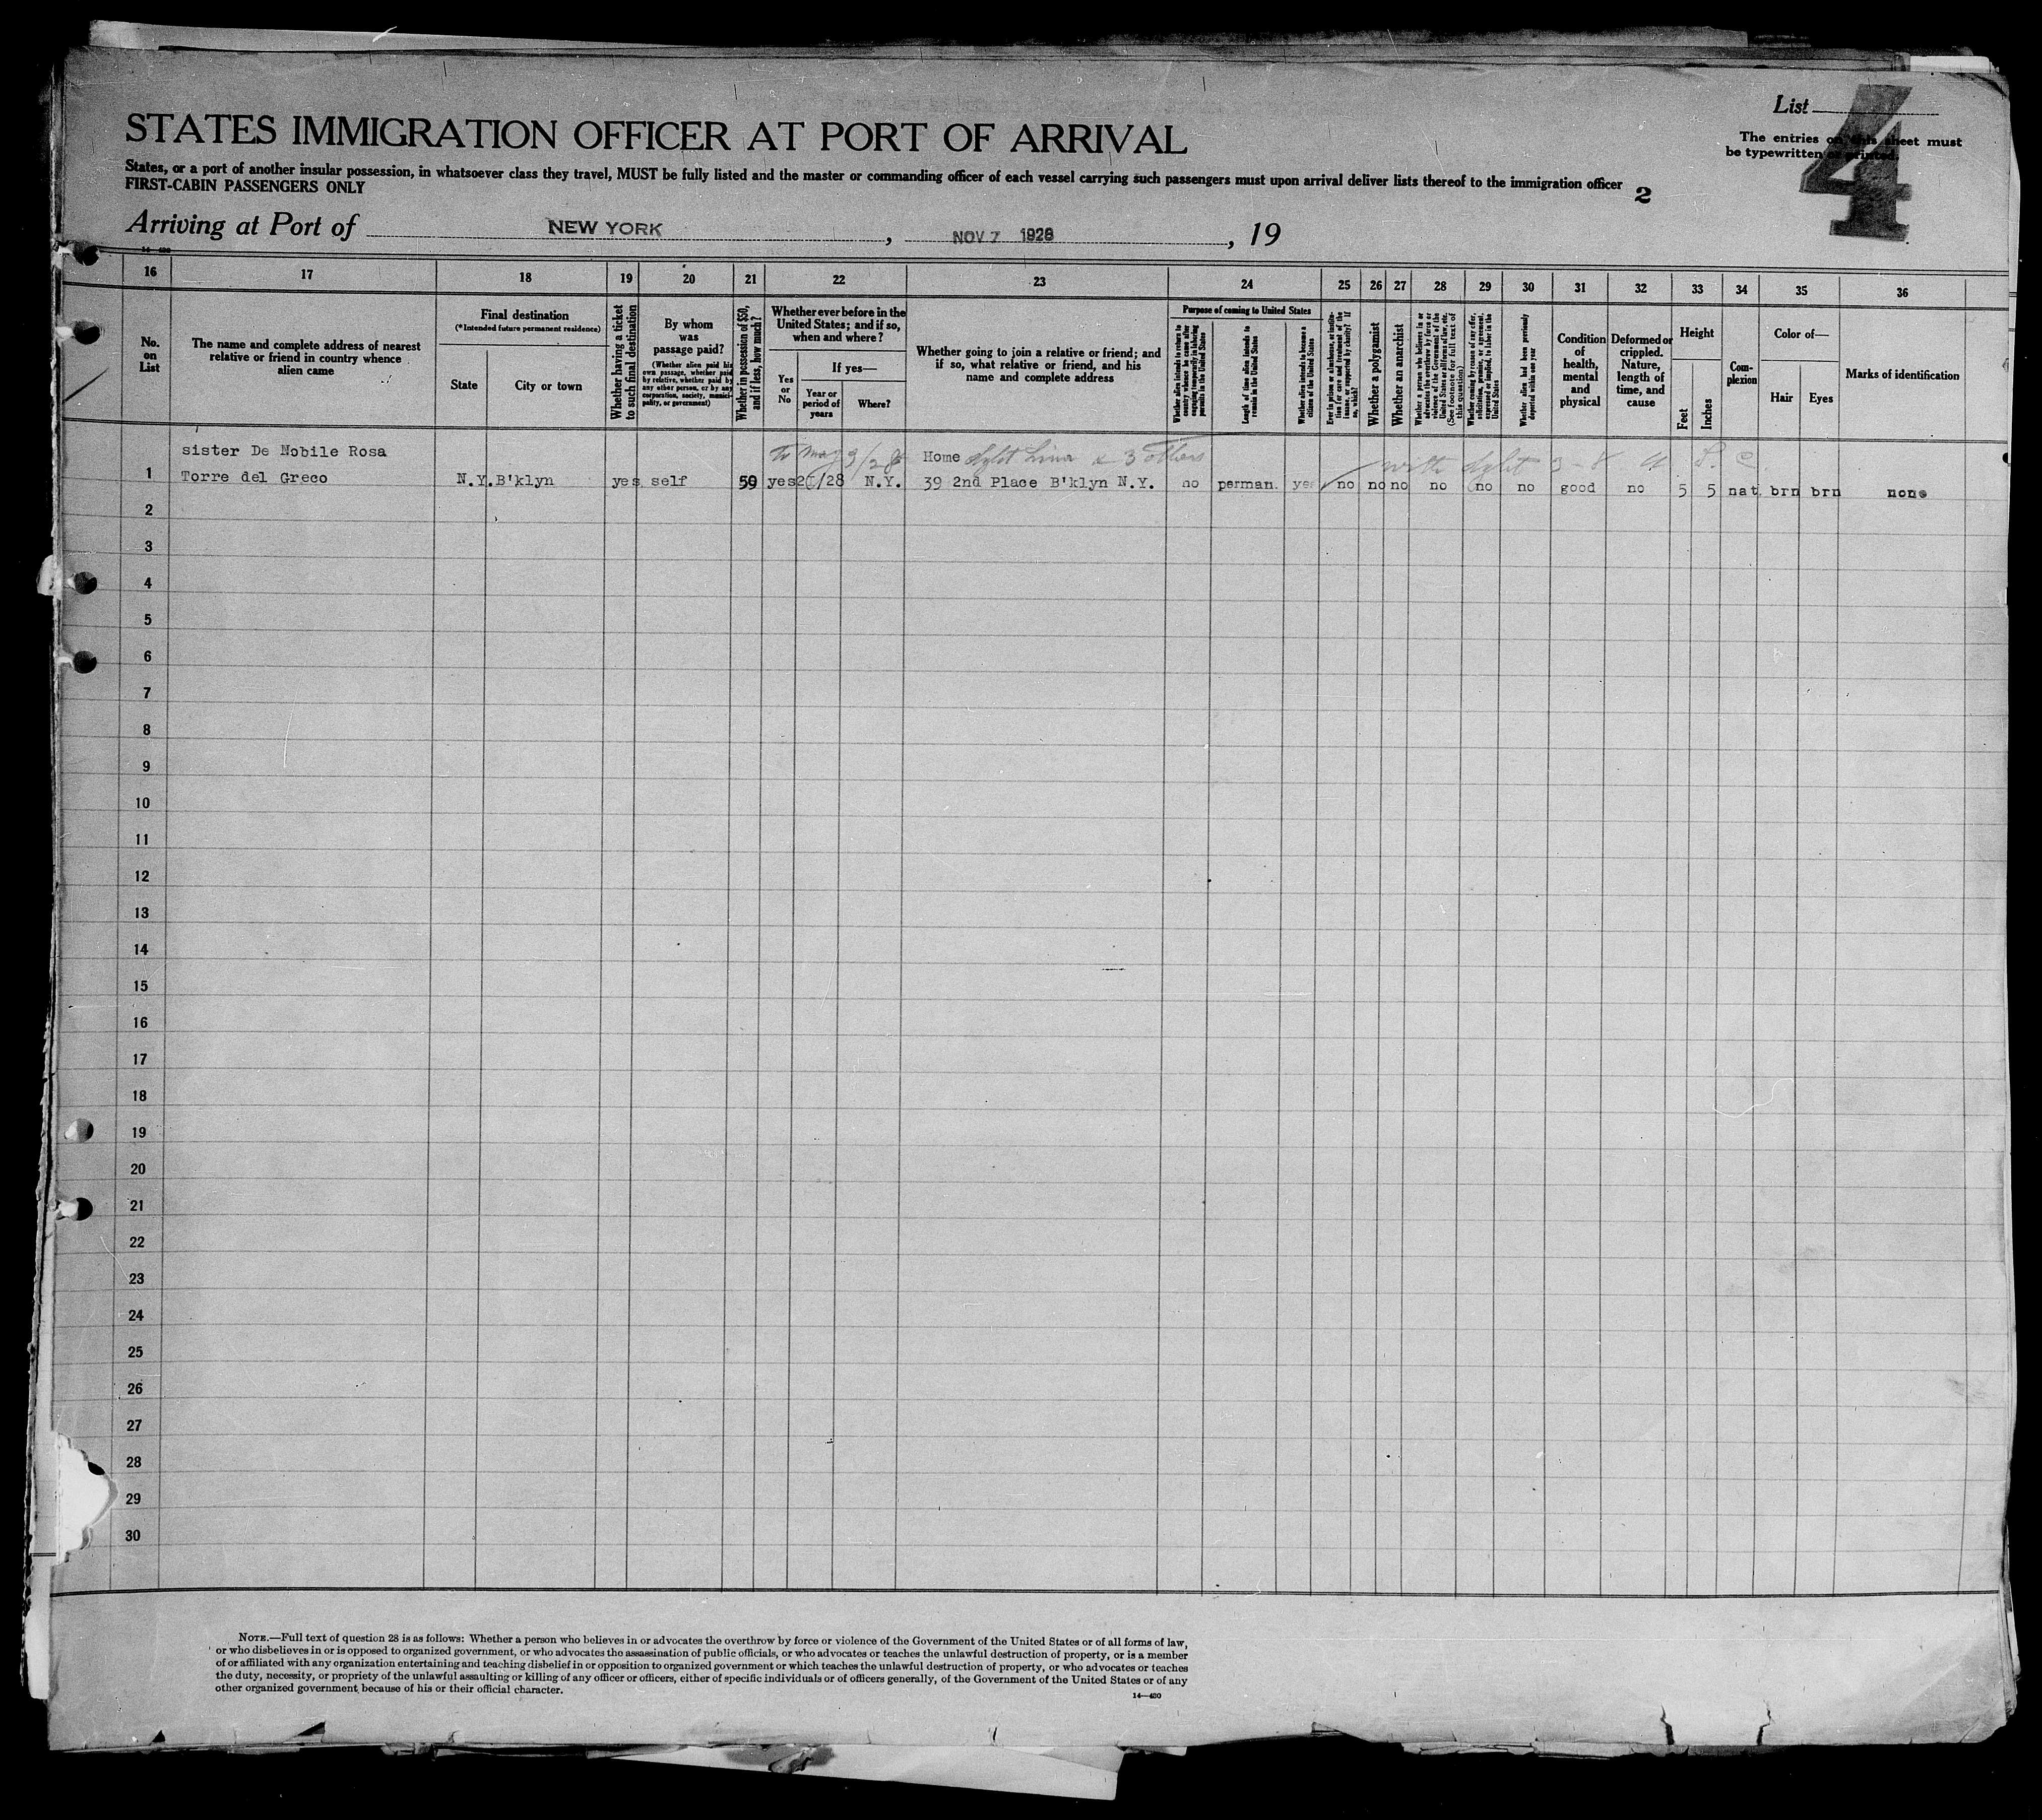 List
4
The entries on this sheet must
be typewritten or printed.
STATES IMMIGRATION OFFICER AT PORT OF ARRIVAL
States, or a port of another insular possession, in whatsoever class they travel, MUST be fully listed and the master or commanding officer of each vessel carrying such passengers must upon arrival deliver lists thereof to the immigration officer
FIRST-CABIN PASSENGERS ONLY
2
Arriving at Port of NEW YORK, NOV 7 1928, 19
16 17 18 19 20 21 22 23 24 25 26 27 28 29 30 31 32 33 34 35 36
No.
on
List
The name and complete address of nearest
relative or friend in country whence
alien came
Final destination
(*Intended future permanent residence)
State
City or town
Whether having a ticket
to such final destination
By whom
was
passage paid?
(Whether alien paid his
own passage, whether paid
by relative, whether paid by
any other person, or by any
corporation, society, munici-
pality, or government)
Whether in possession of $50,
and if less, how much?
Whether ever before in the
United States; and if so,
when and where?
Yes
or
No
If yes—
Year or
period of
years
Where?
Whether going to join a relative or friend; and
if so, what relative or friend, and his
name and complete address
Purpose of coming to United States
Whether alien intends to return to
country whence he came after
engaging temporarily in laboring
pursuits in the United States
Length of time alien intends to
remain in the United States
Whether alien intends to become a
citizen of the United States
Ever in prison or almshouse, or institu-
tion for care and treatment of the
insane, or supported by charity? If
so, which?
Whether a polygamist
Whether an anarchist
Whether a person who believes in or
advocates the overthrow by force or
violence of the Government of the
United States or all forms of law, etc.
(See footnote for full text of
this question)
Whether coming by reason of any offer,
solicitation, promise, or agreement,
expressed or implied, to labor in the
United States
Whether alien had been previously
deported within one year
Condition
of
health,
mental
and
physical
Deformed or
crippled.
Nature,
length of
time, and
cause
Height
Feet
Inches
Com-
plexion
Color of—
Hair
Eyes
Marks of identification
sister De Nobile Rosa to May 3/28 Home & 3 others
1 Torre del Greco N.Y. B'klyn yes self 50 yes /28 N.Y. 39 2nd Place B'klyn N.Y. no perman. yes no no no no no no good no 5 5 nat brn brn none
2
3
4
5
6
7
8
9
10
11
12
13
14
15
16
17
18
19
20
21
22
23
24
25
26
27
28
29
30
NOTE.—Full text of question 28 is as follows: Whether a person who believes in or advocates the overthrow by force or violence of the Government of the United States or of all forms of law,
or who disbelieves in or is opposed to organized government, or who advocates the assassination of public officials, or who advocates or teaches the unlawful destruction of property, or is a member
of or affiliated with any organization entertaining and teaching disbelief in or opposition to organized government or which teaches the unlawful destruction of property, or who advocates or teaches
the duty, necessity, or propriety of the unlawful assaulting or killing of any officer or officers, either of specific individuals or of officers generally, of the Government of the United States or of any
other organized government, because of his or their official character.
14—430